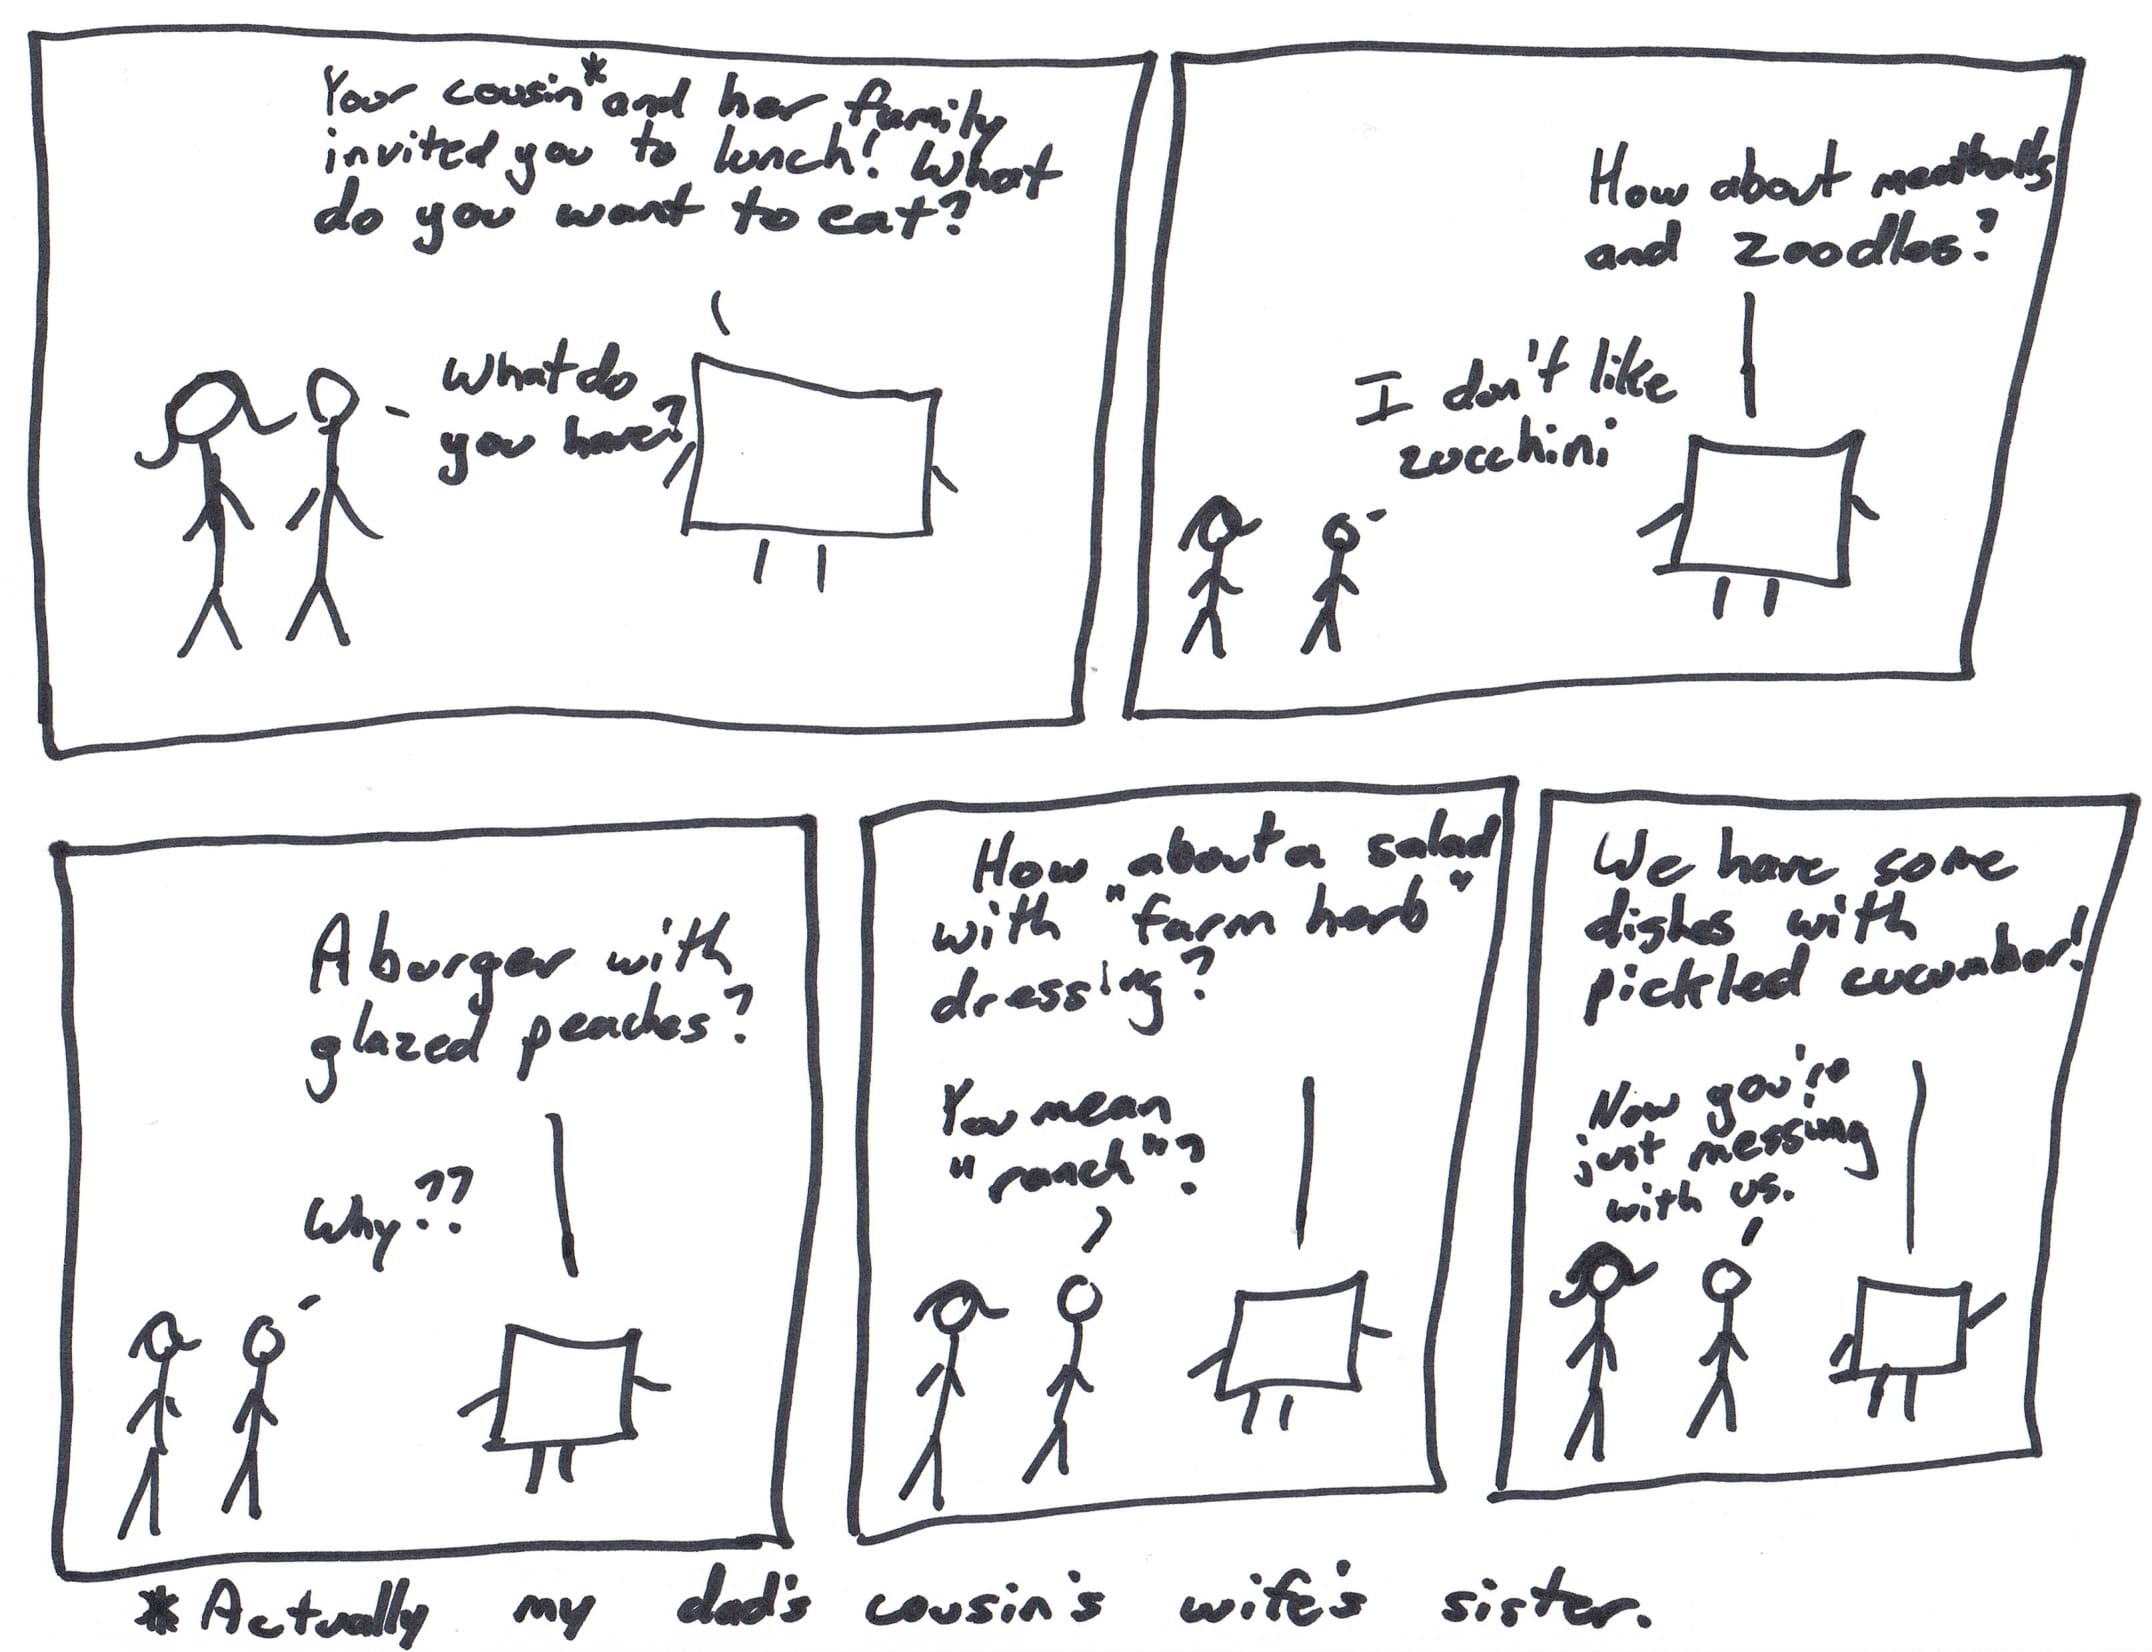 Your cousin* and her family
invited you to lunch! What
do you want to eat?
What do
you have?
How about meatballs
and zoodles?
I don't like
zucchini
A burger with
glazed peaches?
Why??
How about a salad
with "farm herb"
dressing?
You mean
"ranch"?
We have some
dishes with
pickled cucumber!
Now you're
just messing
with us.
* Actually my dad's cousin's wife's sister.